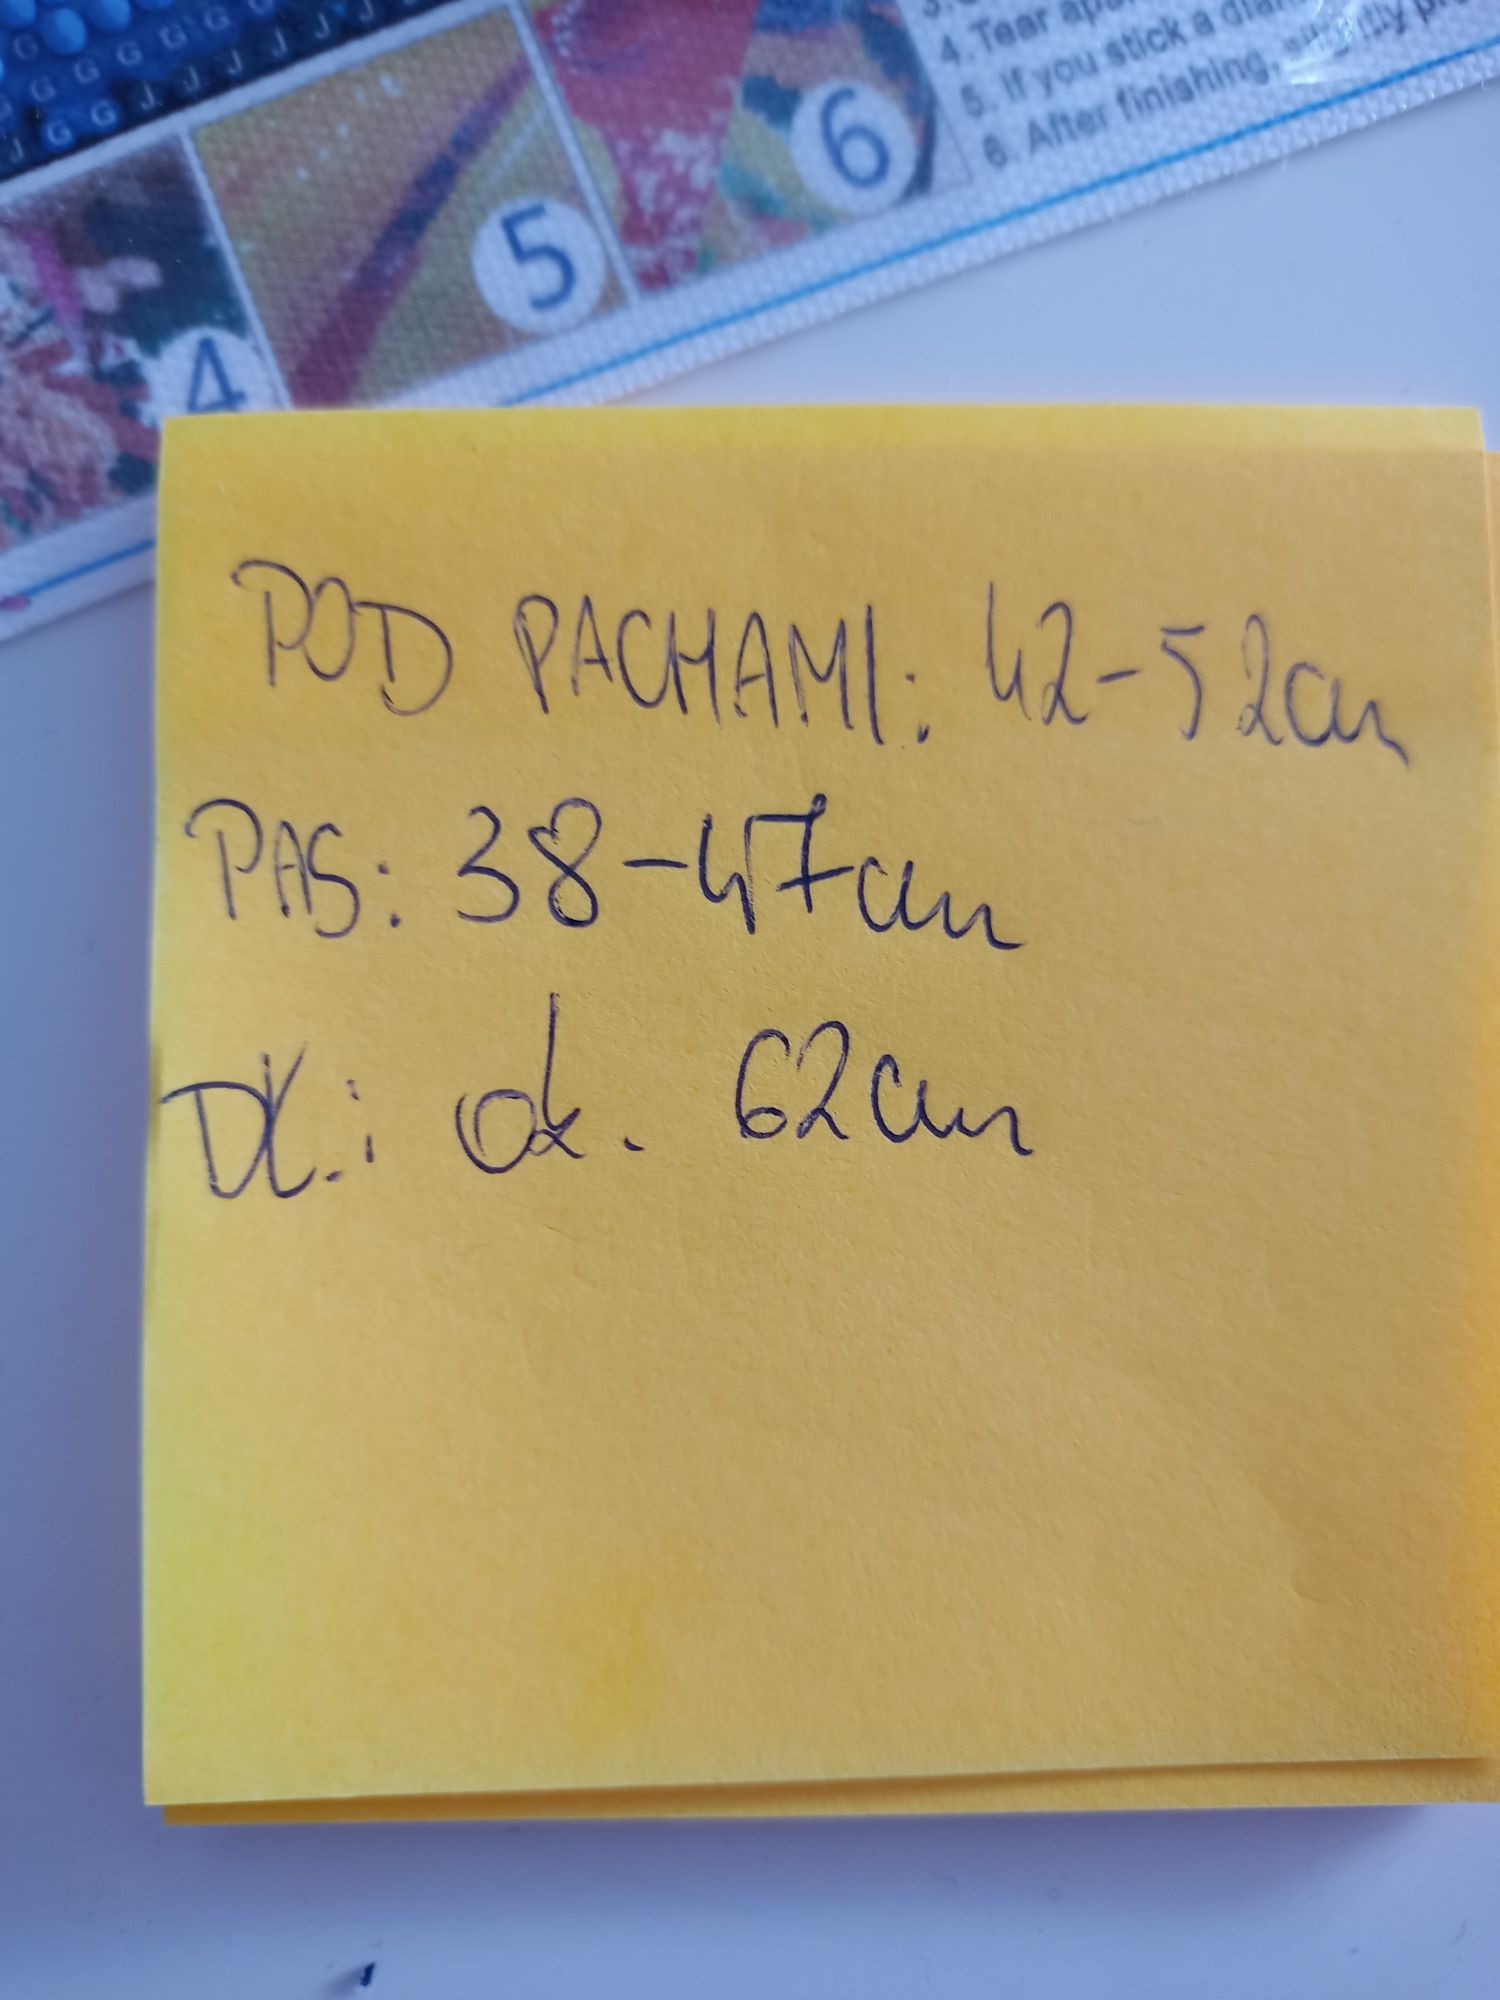 3.
4. Tear apa
5. If you stick a diam
6. After finishing, slightly pre
G G G G J J J
G G G G J J J
J G G
4
5
6
POD PACHAMI: 42-52cm
PAS: 38-47cm
DŁ.: ok. 62cm